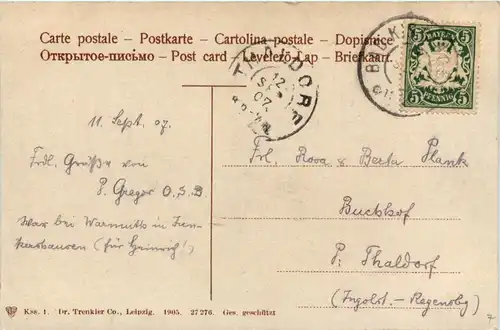 Carte postale – Postkarte – Cartolina postale – Dopisnice
Открытое-письмо – Post card – Levelező-Lap – Briefkaart.
BAYERN
5 5
5 PFENNIG 5
BAD K
THALDORF
12
SEP
07
11. Sept. 07.
Frdl. Grüße von
P. Gregor O.S.B.
War bei Warmuths in
(für Heinrich!)
Frl. Rosa & Berta Plank
Buchhof
P. Thaldorf
(Ingolst. – Regensbg)
Kss. 1. Dr. Trenkler Co., Leipzig. 1905. 27 276. Ges. geschützt
7